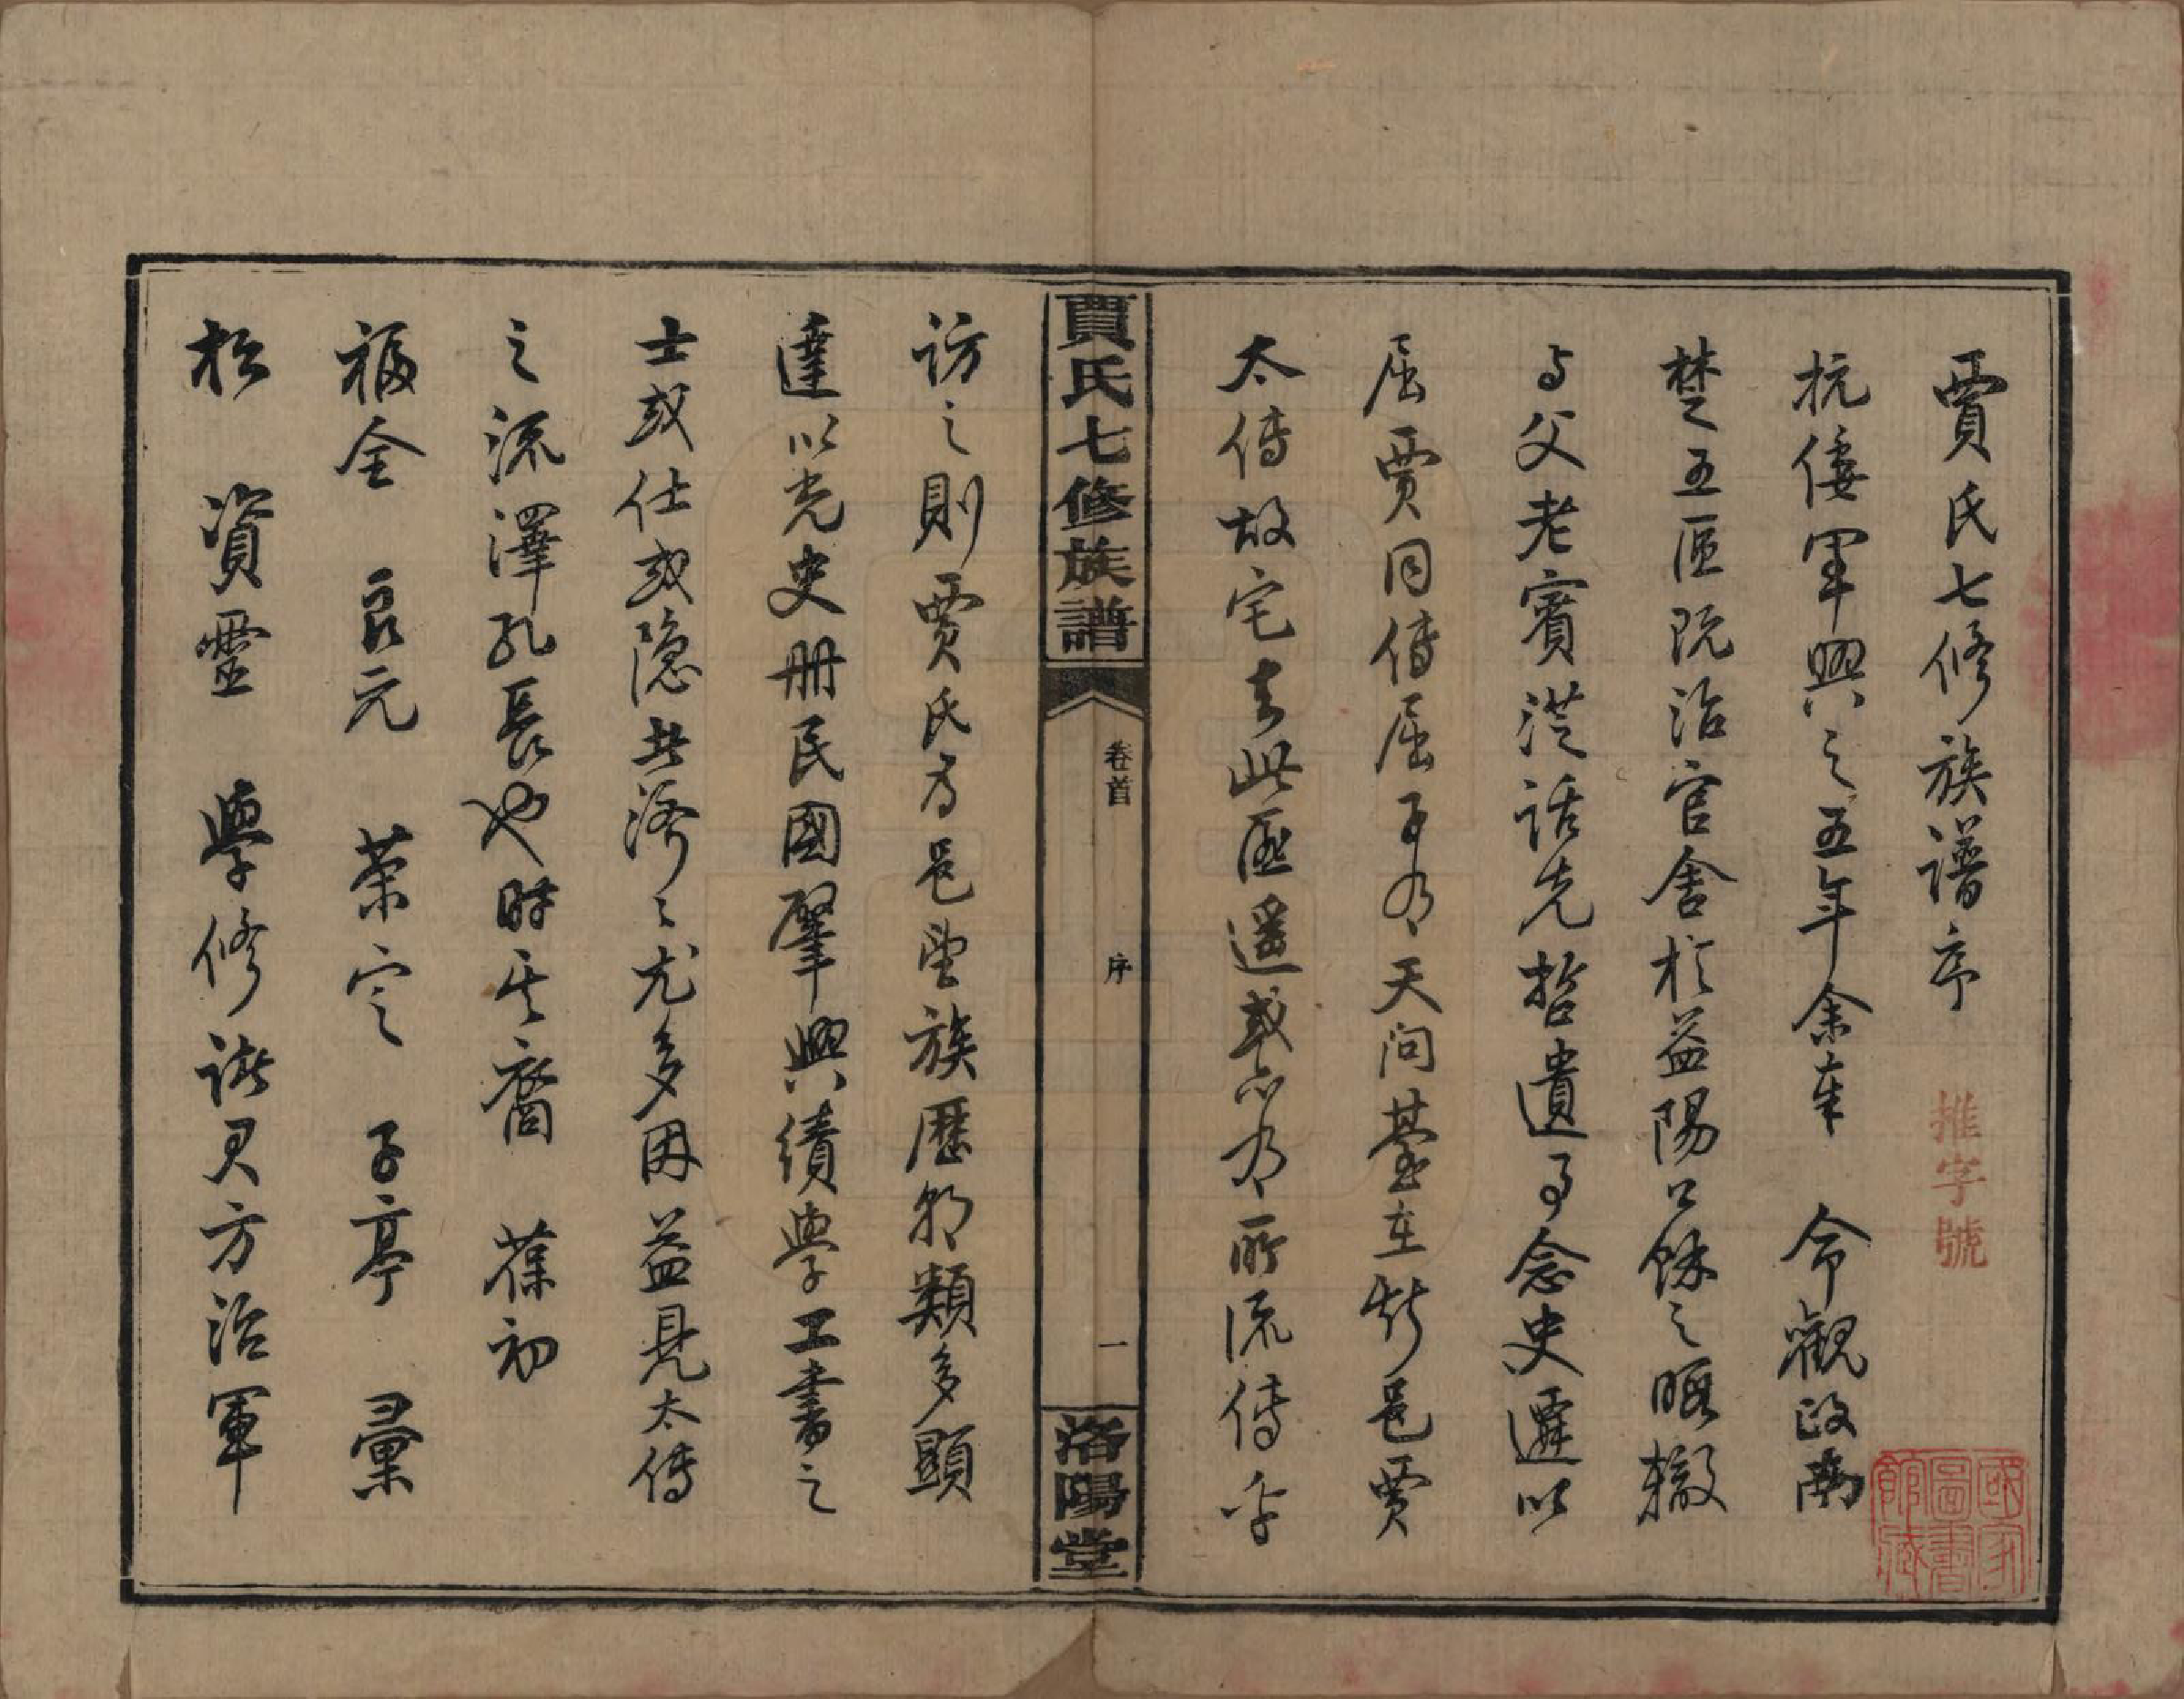 賈氏七修族譜序
推字號
抗倭軍興之五年余奉 命觀政南
楚五區既治官舍於益陽公餘之暇輒
与父老賓從話先哲遺事念史遷以
屈賈同傳屈子有天問臺在斯邑賈
太傅故宅去此匪遥或亦有所流傳乎
國家圖書館藏
賈氏七修族譜
卷首
序
一
洛陽堂
訪之則賈氏為邑望族歷朝類多顯
達以光史册民國肇興績學工書之
士或仕或隱其濟々尤多因益見太傅
之流澤孔長也時其裔 葆初
福全 良元 荣定 子亭 彙
松 資靈 學修諸君方治軍